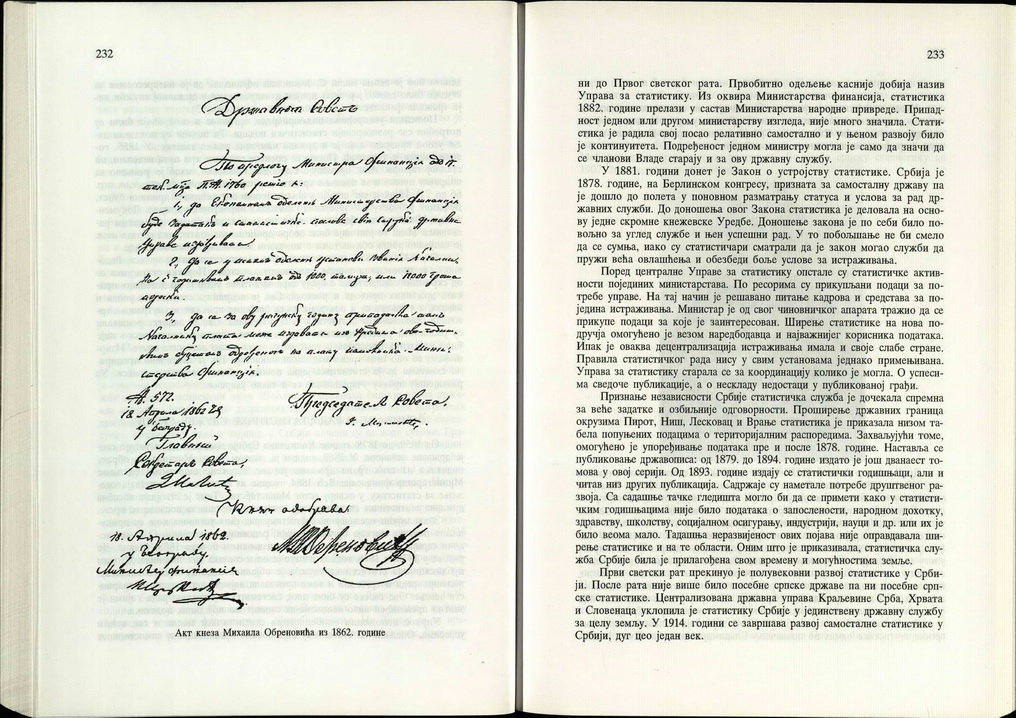 232
Државном Совету
По предлогу Министра Финансија од 17.
тек. мца П.№ 1760 решио є:
1, да
буде
управе
2, да се у
на с годишњом платом од 1000 талира, или 12000 гроша
3, да се за ову рачунску годину
плата може издавати из
Мини-
стерства Финансіє.
№. 572.
18 Априла 1862 г.
у Београду.
Председатељ Совета,
Главни
Секретаръ Совета,
Књаз одобрава
18. Априла 1862.
у Београду.
М. М. Обреновић
Министеръ финансіє
Акт кнеза Михаила Обреновића из 1862. године
233
ни до Првог светског рата. Првобитно одељење касније добија назив
Управа за статистику. Из оквира Министарства финансија, статистика
1882. године прелази у састав Министарства народне привреде. Припад-
ност једном или другом министарству изгледа, није много значила. Стати-
стика је радила свој посао релативно самостално и у њеном развоју било
је континуитета. Подређеност једном министру могла је само да значи да
се чланови Владе старају и за ову државну службу.
У 1881. години донет је Закон о устројству статистике. Србија је
1878. године, на Берлинском конгресу, призната за самосталну државу па
је дошло до полета у поновном разматрању статуса и услова за рад др-
жавних служби. До доношења овог Закона статистика је деловала на осно-
ву једне скромне кнежевске Уредбе. Доношење закона је по себи било по-
вољно за углед службе и њен успешни рад. У то побољшање не би смело
да се сумња, иако су статистичари сматрали да је закон могао служби да
пружи већа овлашћења и обезбеди боље услове за истраживања.
Поред централне Управе за статистику опстале су статистичке актив-
ности појединих министарстава. По ресорима су прикупљани подаци за по-
требе управе. На тај начин је решавано питање кадрова и средстава за по-
једина истраживања. Министар је од свог чиновничког апарата тражио да се
прикупе подаци за које је заинтересован. Ширење статистике на нова по-
дручја омогућено је везом наредбодавца и најважнијег корисника података.
Ипак је оваква децентрализација истраживања имала и своје слабе стране.
Правила статистичког рада нису у свим установама једнако примењивана.
Управа за статистику старала се за координацију колико је могла. О успеси-
ма сведоче публикације, а о нескладу недостаци у публикованој грађи.
Признање независности Србије статистичка служба је дочекала спремна
за веће задатке и озбиљније одговорности. Проширење државних граница
окрузима Пирот, Ниш, Лесковац и Врање статистика је приказала низом та-
бела попуњених подацима о територијалним распоредима. Захваљујући томе,
омогућено је упоређивање података пре и после 1878. године. Наставља се
публиковање државописа: од 1879. до 1894. године издато је још дванаест то-
мова у овој серији. Од 1893. године издају се статистички годишњаци, али и
читав низ других публикација. Садржаје су наметале потребе друштвеног ра-
звоја. Са садашње тачке гледишта могло би да се примети како у статисти-
чким годишњацима није било података о запослености, народном дохотку,
здравству, школству, социјалном осигурању, индустрији, науци и др. или их је
било веома мало. Тадашња неразвијеност ових појава није оправдавала ши-
рење статистике и на те области. Оним што је приказивала, статистичка слу-
жба Србије била је прилагођена свом времену и могућностима земље.
Први светски рат прекинуо је полувековни развој статистике у Срби-
ји. После рата није више било посебне српске државе па ни посебне срп-
ске статистике. Централизована државна управа Краљевине Срба, Хрвата
и Словенаца уклопила је статистику Србије у јединствену државну службу
за целу земљу. У 1914. години се завршава развој самосталне статистике у
Србији, дуг цео један век.